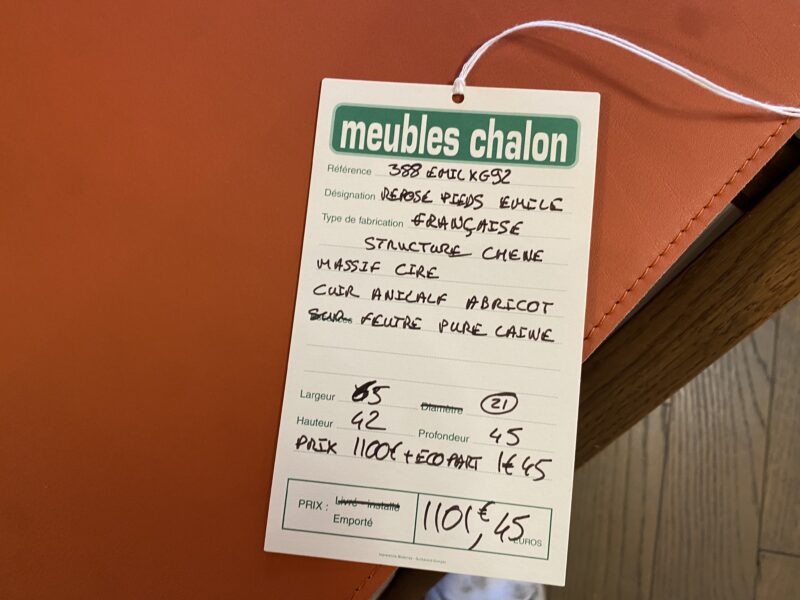 meubles chalon
Référence 388 EMILXG92
Désignation REPOSE PIEDS EMILE
Type de fabrication FRANÇAISE
STRUCTURE CHENE
MASSIF CIRE
CUIR ANILALF ABRICOT
SUR FEUTRE PURE LAINE
Largeur 65 Diamètre 21
Hauteur 42 Profondeur 45
PRIX 1100€ + ECOPART 1€45
PRIX : Livré - installé
Emporté 1101,€45 EUROS